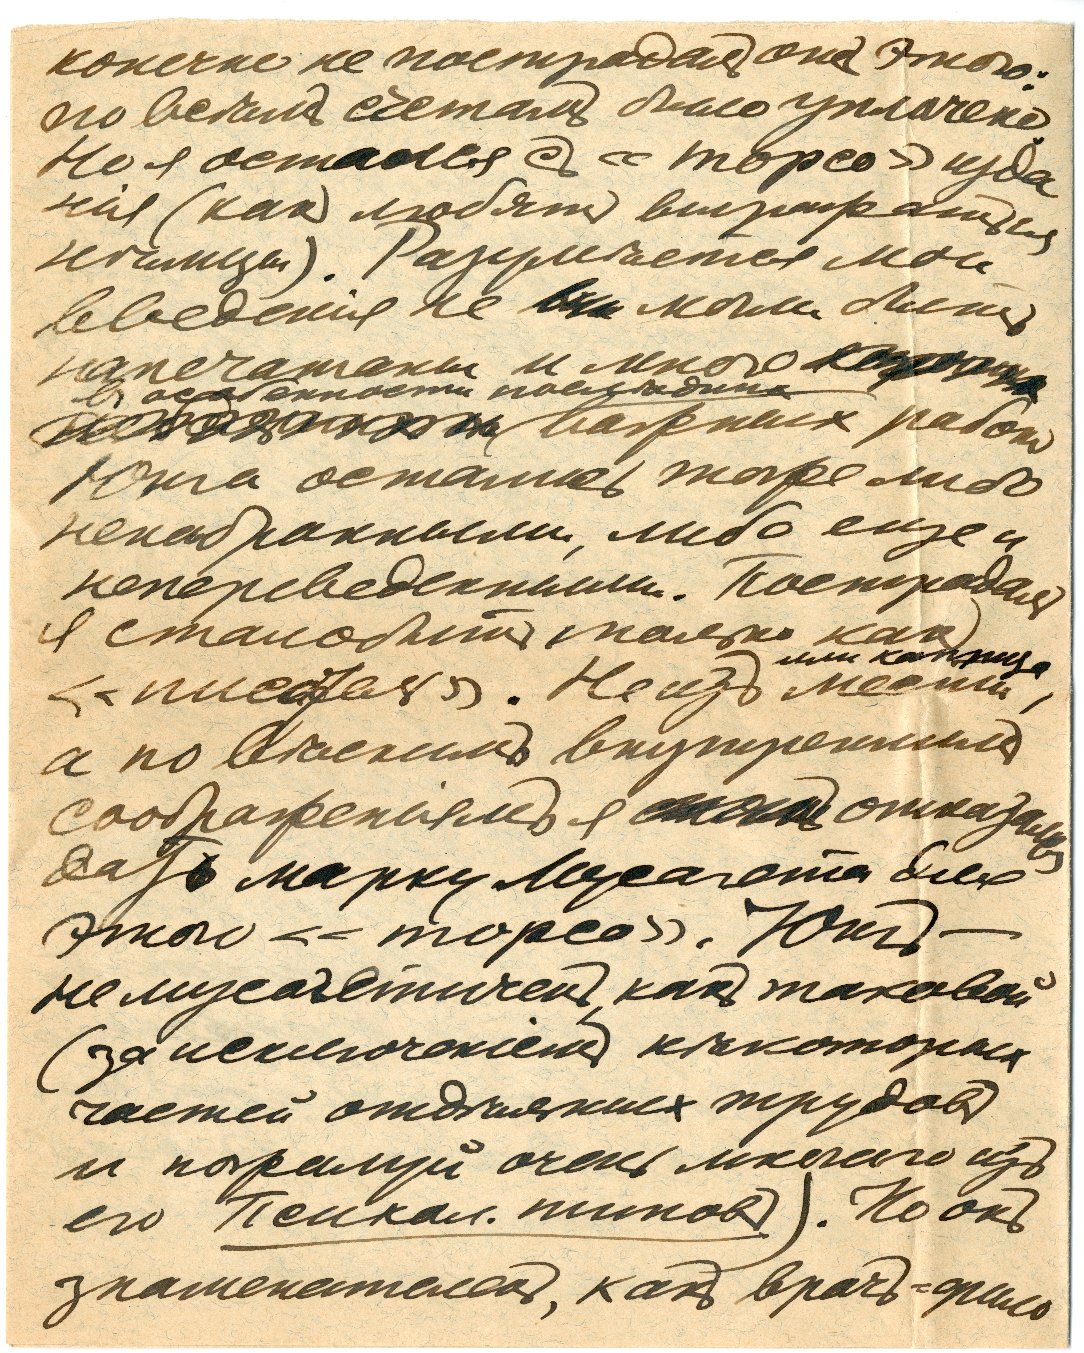 конечно не пострадалъ онъ этого:
по всѣмъ счетамъ было уплачено.
Но я остался съ «торсо» изда
нія (какъ любятъ выражаться
нѣмцы). Разумѣется мои
введенія не могли быть
напечатаны и много
въ особенности послѣднихъ
важныхъ работъ
Юнга остались тоже либо
ненабранными, либо еще и
непереведенными. Пострадалъ
я стало быть только какъ
или каприза
«писатель». Не изъ мести,
а по вѣскимъ внутреннимъ
соображеніямъ я отказалъ
дать марку Мусагета для
этого «торсо». Юнгъ —
не мусагетиченъ, какъ таковой
(за исключеніемъ нѣкоторыхъ
частей отдѣльныхъ трудовъ
и пожалуй очень многаго изъ
его Психол. типовъ). Но онъ
знаменателенъ, какъ врачъ=фило